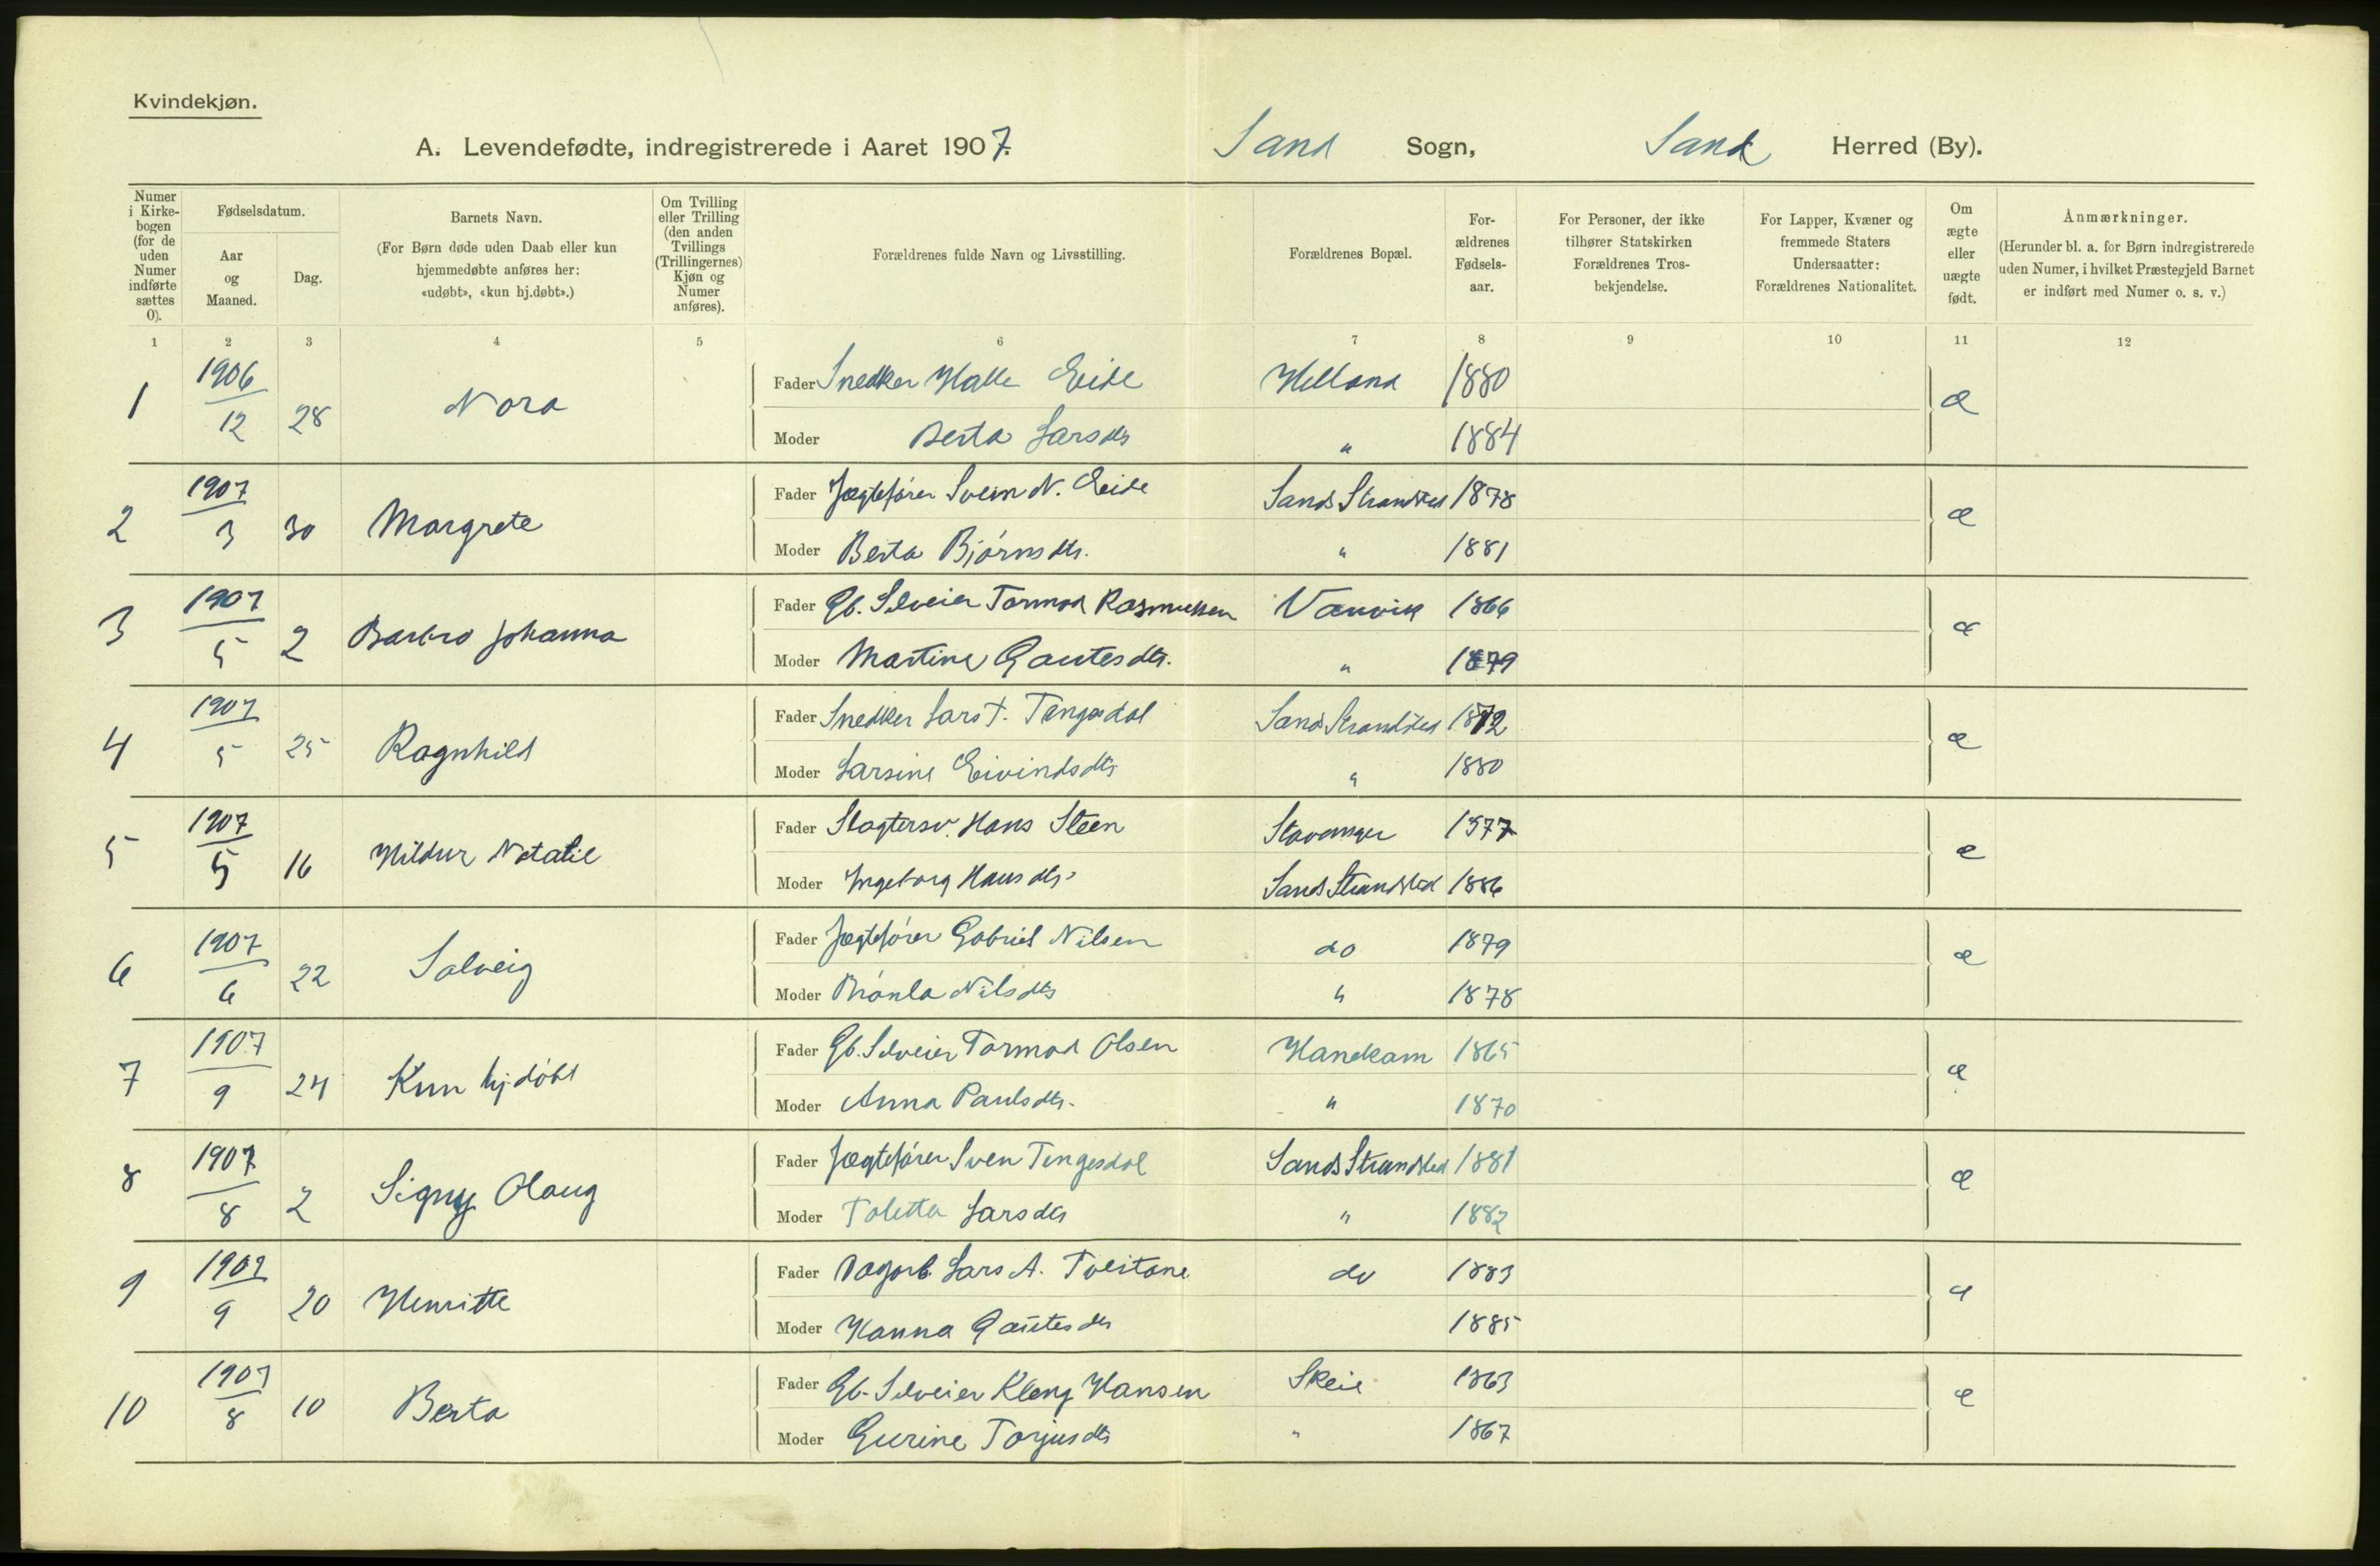 Kvindekjøn.
A. Levendefødte, indregistrerede i Aaret 1907. Sand Sogn, Sand Herred (By).
Numer i Kirkebogen (for de uden Numer indførte sættes 0).
Fødselsdatum.
Aar og Maaned.
Dag.
Barnets Navn.
(For Børn døde uden Daab eller kun hjemmedøbte anføres her: «udøbt», «kun hj.døbt».)
Om Tvilling eller Trilling (den anden Tvillings (Trillingernes) Kjøn og Numer anføres).
Forældrenes fulde Navn og Livsstilling.
Forældrenes Bopæl.
Forældrenes Fødselsaar.
For Personer, der ikke tilhører Statskirken Forældrenes Trosbekjendelse.
For Lapper, Kvæner og fremmede Staters Undersaatter: Forældrenes Nationalitet.
Om ægte eller uægte født.
Anmærkninger.
(Herunder bl. a. for Børn indregistrerede uden Numer, i hvilket Præstegjeld Barnet er indført med Numer o. s. v.)
1 2 3 4 5 6 7 8 9 10 11 12
1 1906/12 28 Nora Fader Snedker Halle Eide Helland 1880 æ
Moder Berta Larsdtr " 1884
2 1907/3 30 Margrete Fader Jægtefører Svein N. Eide Sands Strandsted 1878 æ
Moder Berta Bjørnsdtr. " 1881
3 1907/5 2 Barbro Johanna Fader Gb. Selveier Tormod Rasmussen Vanvik 1866 æ
Moder Martine Gautesdtr. " 1879
4 1907/5 25 Ragnhild Fader Snedker Lars T. Tengesdal Sands Strandsted 1872 æ
Moder Larsine Eivindsdtr " 1880
5 1907/5 16 Hildur Natalie Fader Slagtersv. Hans Steen Stavanger 1877 æ
Moder Ingeborg Hansdtr. Sands Strandsted 1886
6 1907/6 22 Solveig Fader Jægtefører Gabriel Nilsen do 1879 æ
Moder Nilsdtr " 1878
7 1907/9 24 Kun hj.døbt Fader Gb. Selveier Tormod Olsen Handkam 1865 æ
Moder Anna Paulsdtr. " 1870
8 1907/8 2 Signy Olaug Fader Jægtefører Sven Tengesdal Sands Strandsted 1881 æ
Moder Toletta Larsdtr " 1882
9 1907/9 20 Henritte Fader Dagarb. Lars A. Tveitane do 1883 æ
Moder Hanna Gautesdtr 1885
10 1907/8 10 Berta Fader Gb. Selveier Kleng Hansen Skeie 1863 æ
Moder Gurine Torjusdtr " 1867